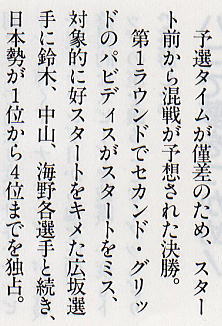 予選タイムが僅差のため、スター
ト前から混戦が予想された決勝。
　第1ラウンドでセカンド・グリッ
ドのパビディスがスタートをミス、
対象的に好スタートをキメた広坂選
手に鈴木、中山、海野各選手と続き、
日本勢が1位から4位までを独占。